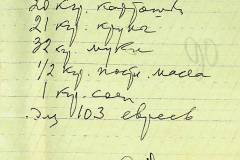 20 кгр. картошки
21 кгр. крупы
32 кгр. муки
1/2 кгр. постн. масла
1 кгр. соли
103 евреев